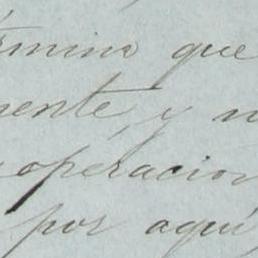 término que
mente, y n
operacion
por aquí